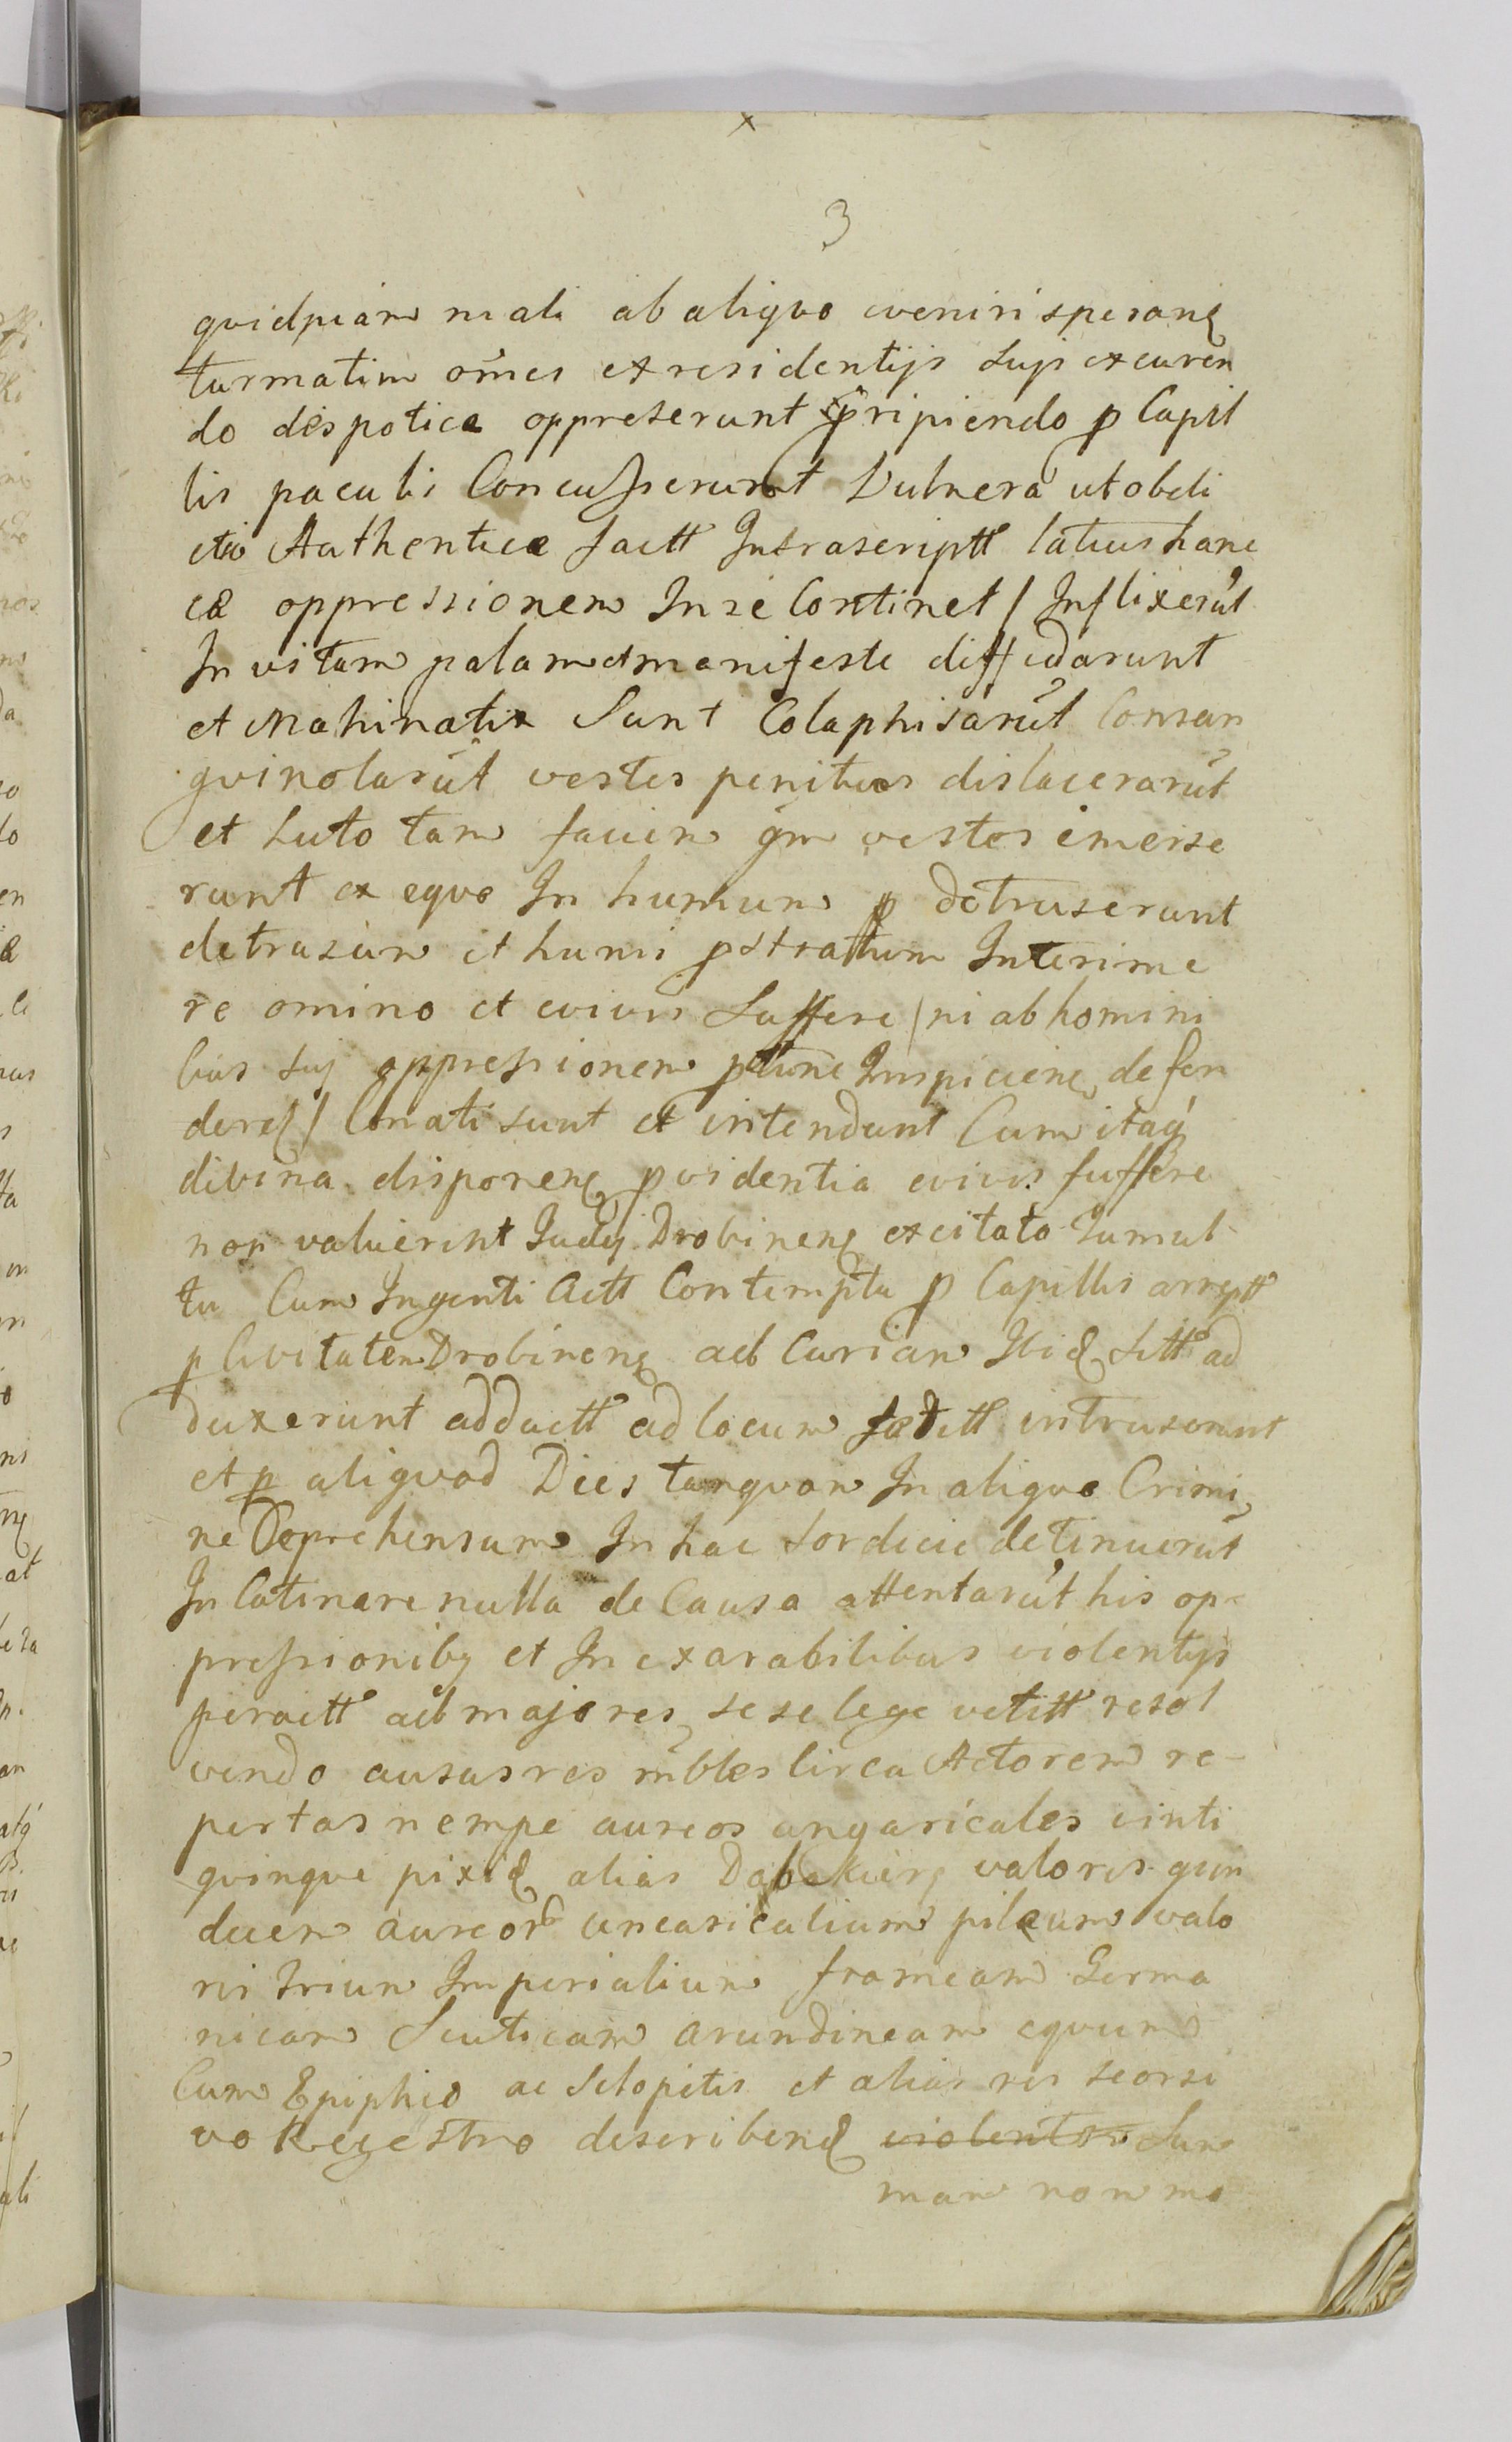 3
quidpiam mali ab aliquo eveniri speranĘ
turmatim oms ex residentijs sujs excuren
do despotice oppreserunt ꝓripiendo ꝑ Capil
lis paculis Concusserunt Vulnera ut obdu
ctio Authentice factt Infrascriptt latius hanc
ce oppressionem In se Continet / Inflixerūt
In vitam palam et manifeste diffidarunt
et Mahinati Sunt Colaphisarūt Consan
guinolarūt vestes penitus dislacerarūt
et Luto tam faciem qm vestes imerse
runt ex equo In humum ꝑ detruserunt
detrusum et humi ꝓstratum Interime
re omino et evivis Sufferre / ni ab homini
bus suj oppressionem Inspicienę defen
deręt / Conati sunt et intendunt Cum itaq
divina disponenę ꝓvidentia evivis sufferre
non valuerint Judęi Drobinenę excitato tumul
tu Cum Ingenti Actt Contemptu ꝑ Capillis arreptt
ꝑ Civitatem Drobinenę ad Curiam Ibiđ Sitt ad
duxerunt adductt ad locum fœditt intruserunt
et ꝑ aliquod Dies tanquam In aliquo Crimi
ne Deprehensum In hac Sordicie detinuerūt
Incatinare nulla de Causa attentarūt his op-
pressionibꝯ et In exarabilibus violentijs
peractt ad majores sese lege vetitt resol
vendo ausus res mbles circa Actorem re-
pertas nempe aureos ungaricales vinti
quinque pixiđ alias valoris quin
decem aureor ungaricalium pileum valo
ris trium Imperialium frameam Germa
nicam Scuticam arundineam equum
Cum Ephipio ac Sclopetis et alias res seorsi
vo Regestro describenđ violenter Sum
mam non mo